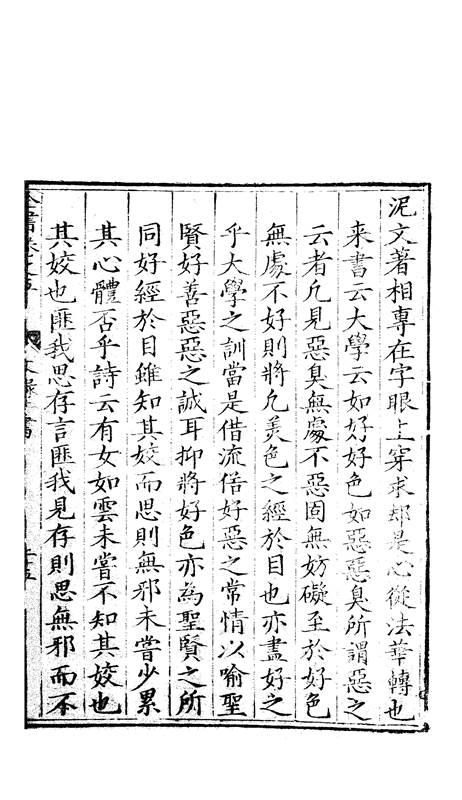 泥文著相專在字眼上穿求却是心從法華轉也
来書云大學云如好好色如惡惡臭所謂惡之
云者凢見惡臭無處不惡固無妨礙至於好色
無處不好則將凢美色之經於目也亦盡好之
乎大學之訓當是借流俗好惡之常情以喻聖
賢好善惡惡之誠耳抑將好色亦為聖賢之所
同好經於目雖知其姣而思則無邪未嘗少累
其心體否乎詩云有女如雲未嘗不知其姣也
其姣也匪我思存言匪我見存則思無邪而不
全書卷之五
文録 書